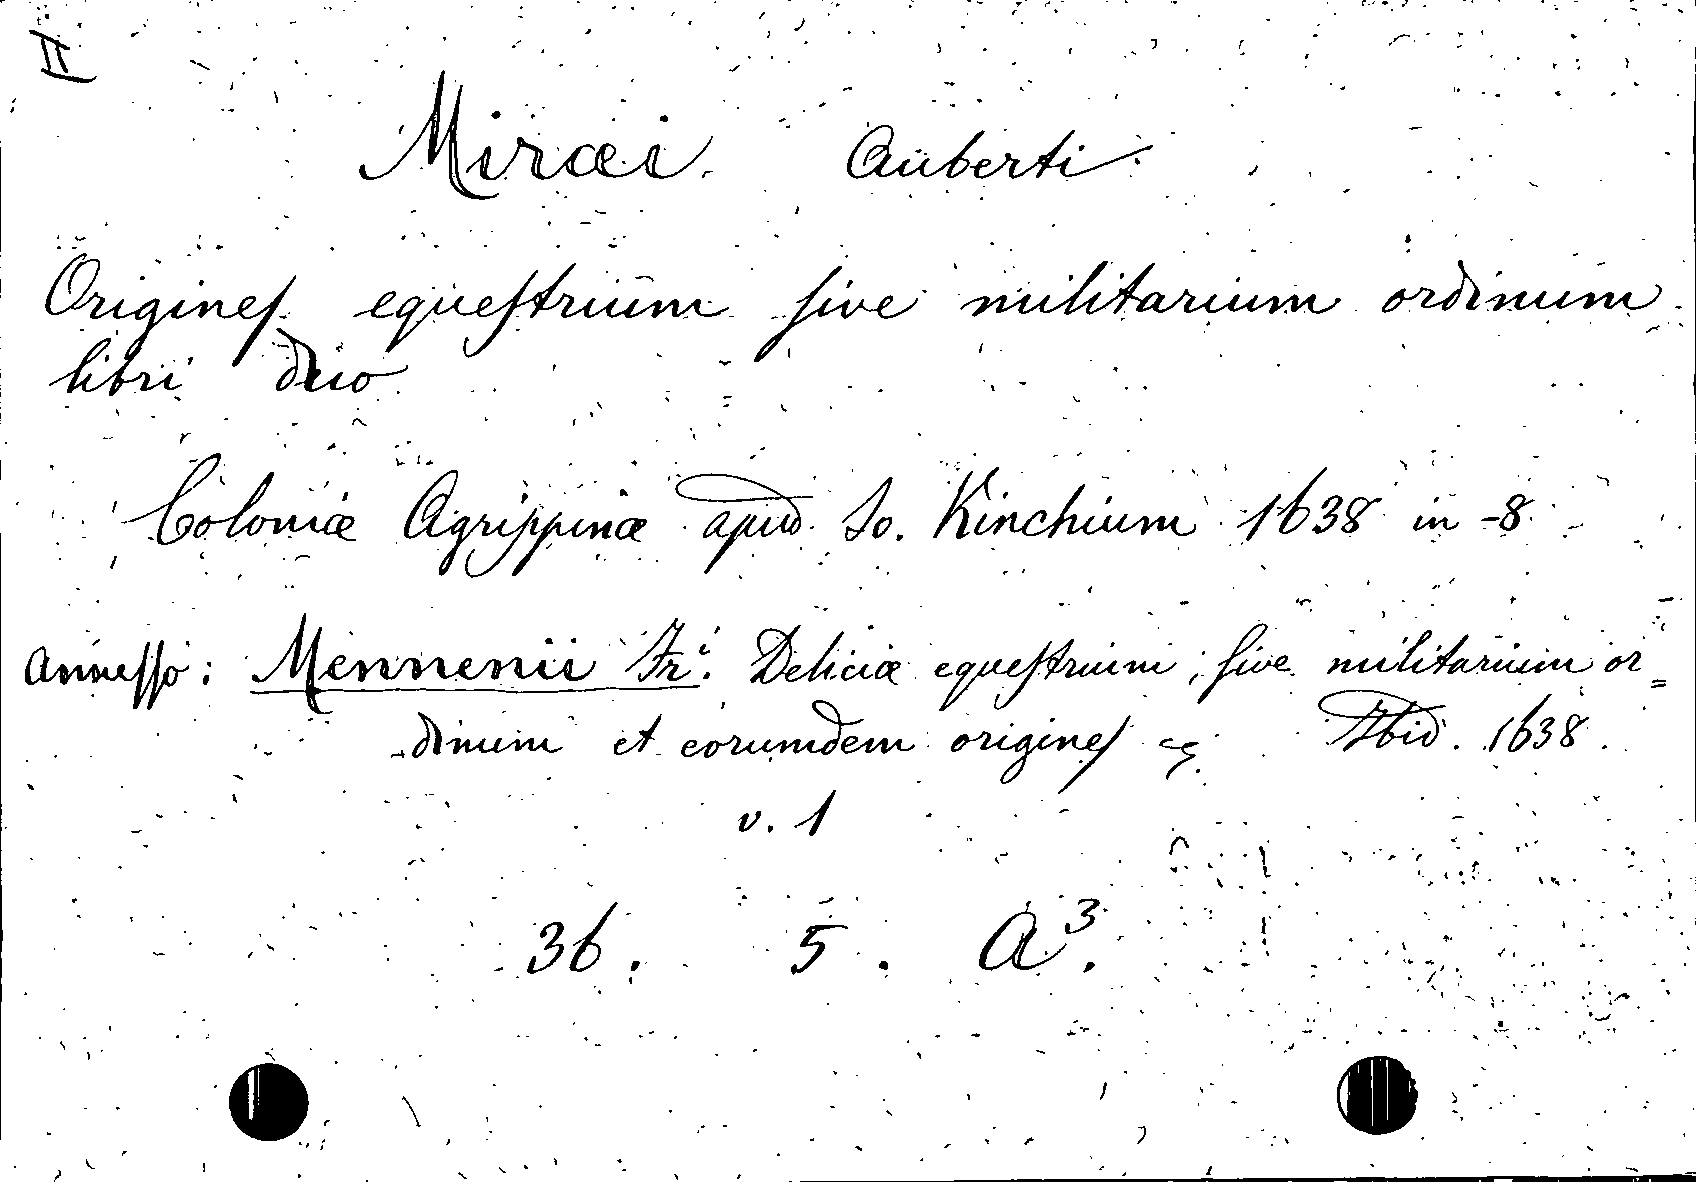 II
Miræi Auberti
Origines equestrium sive militarium ordinum
libri duo
Coloniæ Agrippinæ apud Jo. Kinchium 1638 in-8
Annesso: Mennenii Fr.i Deliciæ equestrium, sive militarium or=
dinum et eorumdem origines Ibid. 1638.
v. 1
36. 5. A3.